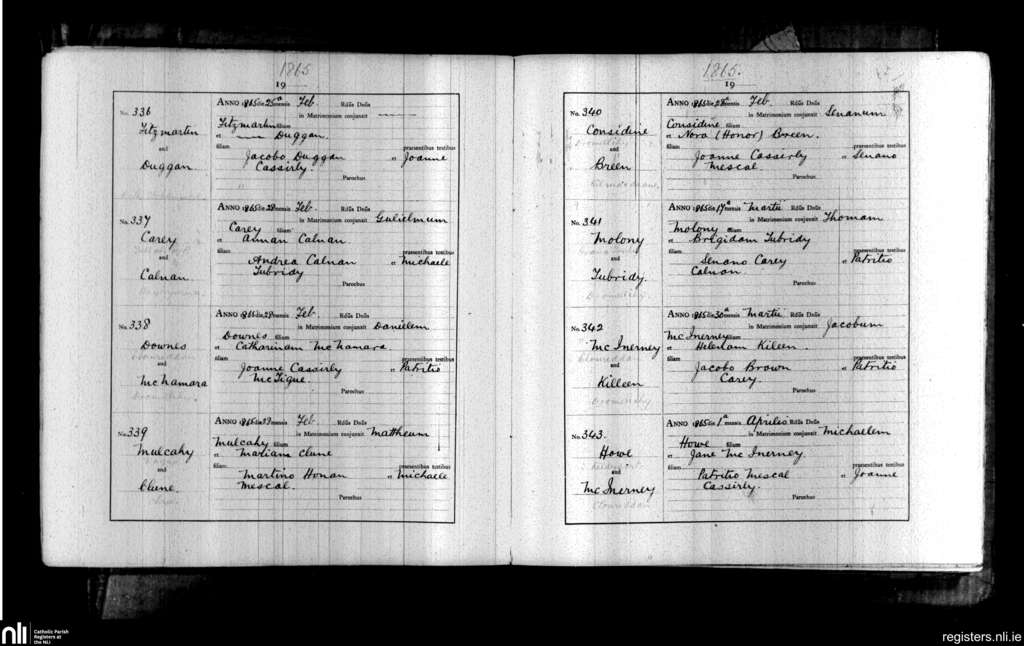 1865
19
No. 336
Fitzmartin
and
Duggan
ANNO 1865 die 25a mensis Feb. Rdus Dnus
in Matrimonium conjunxit
Fitzmartin filium
et Duggan.
filiam praesentibus testibus
Jacobo Duggan et Joanne
Cassirly.
Parochus
No. 337
Carey
and
Calnan
ANNO 1865 die 28 mensis Feb. Rdus Dnus
in Matrimonium conjunxit Gulielmum
Carey filium
et Annan Calnan
filiam praesentibus testibus
Andrea Calnan et Michaele
Tubridy
Parochus
No. 338
Downes
and
McNamara
ANNO 1865 die mensis Feb. Rdus Dnus
in Matrimonium conjunxit Danielem
Downes filium
et Catharinam McNamara.
filiam praesentibus testibus
Joanne Cassirly et Patritio
McTigue.
Parochus
No. 339
Mulcahy
and
Clune.
ANNO 1865 die mensis Feb. Rdus Dnus
in Matrimonium conjunxit Mattheum
Mulcahy filium
et Mariam Clune
filiam praesentibus testibus
Martino Honan et Michaele
Mescal.
Parochus
1865.
19
No. 340
Considine
and
Breen
ANNO 1865 die 28a mensis Feb. Rdus Dnus
in Matrimonium conjunxit Senanum
Considine filium
et Nora (Honor) Breen.
filiam praesentibus testibus
Joanne Cassirly et Senano
Mescal.
Parochus
No. 341
Molony
and
Tubridy.
ANNO 1865 die 17a mensis Martii Rdus Dnus
in Matrimonium conjunxit Thomam
Molony filium
et Brigidam Tubridy
filiam praesentibus testibus
Senano Carey et Patritio
Calnan.
Parochus
No. 342
McInerney
and
Killeen
ANNO 1865 die 30a mensis Martii Rdus Dnus
in Matrimonium conjunxit Jacobum
McInerney filium
et Helenam Kileen.
filiam praesentibus testibus
Jacobo Brown et Patritio
Carey.
Parochus
No. 343.
Howe
and
McInerney
ANNO 1865 die 1a mensis Aprilis Rdus Dnus
in Matrimonium conjunxit Michaelem
Howe filium
et Jane McInerney
filiam praesentibus testibus
Patritio Mescal et Joanne
Cassirly.
Parochus
nli
Catholic Parish
Registers at
the NLI
registers.nli.ie